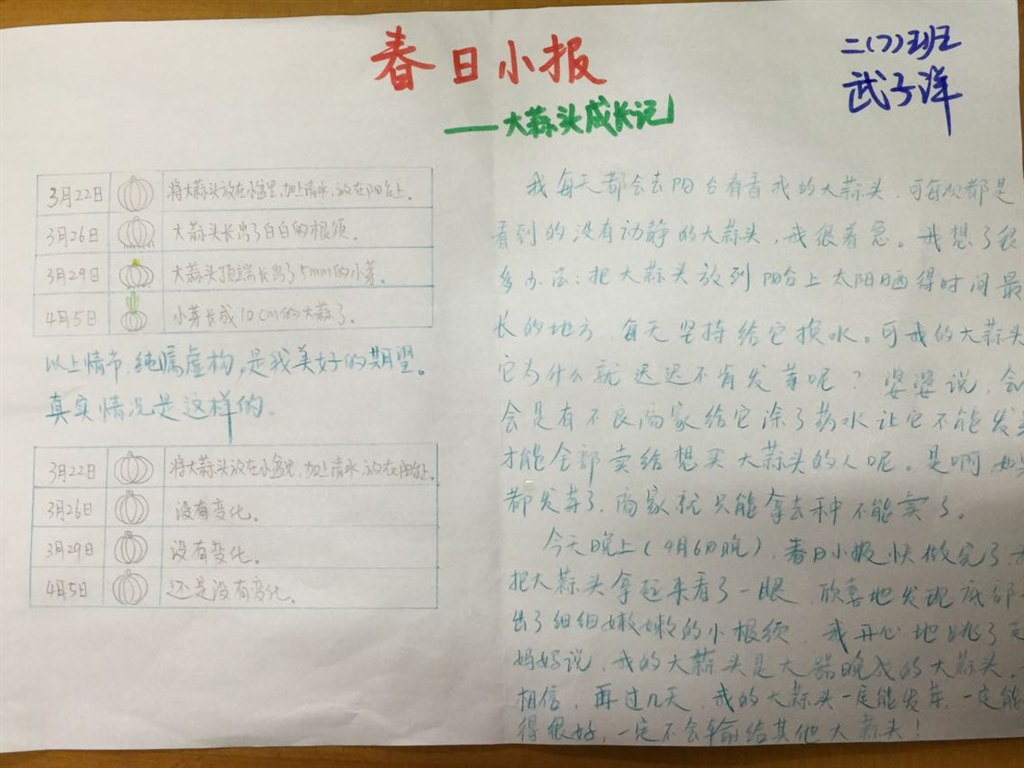 春日小报
——大蒜头成长记
二(7)班
武子洋
3月22日 将大蒜头放在小盆里,加上清水,放在阳台上。
3月26日 大蒜头长出了白白的根须。
3月29日 大蒜头顶端长出了5mm的小芽。
4月5日 小芽长成10cm的大蒜了。
以上情节,纯属虚构,是我美好的期望。
真实情况是这样的。
3月22日 将大蒜头放在小盆里,加上清水,放在阳台上。
3月26日 没有变化。
3月29日 没有变化。
4月5日 还是没有变化。
我每天都会去阳台看看我的大蒜头,可每次都是
看到的没有动静的大蒜头,我很着急。我想了很
多办法:把大蒜头放到阳台上太阳晒得时间最
长的地方,每天坚持给它换水。可我的大蒜头
它为什么就迟迟不肯发芽呢?婆婆说,会
会是有不良商家给它涂了药水让它不能发
才能全部卖给想买大蒜头的人呢。是啊
都发芽了,商家就只能拿去种不能卖了。
今天晚上(4月6日晚),春日小报快做完了,
把大蒜头拿过来看了一眼,欣喜地发现底部
出了细细嫩嫩的小根须,我开心地跳了
妈妈说,我的大蒜头是大器晚成的大蒜头。
相信,再过几天,我的大蒜头一定能发芽,一定能
得很好,一定不会输给其他大蒜头!